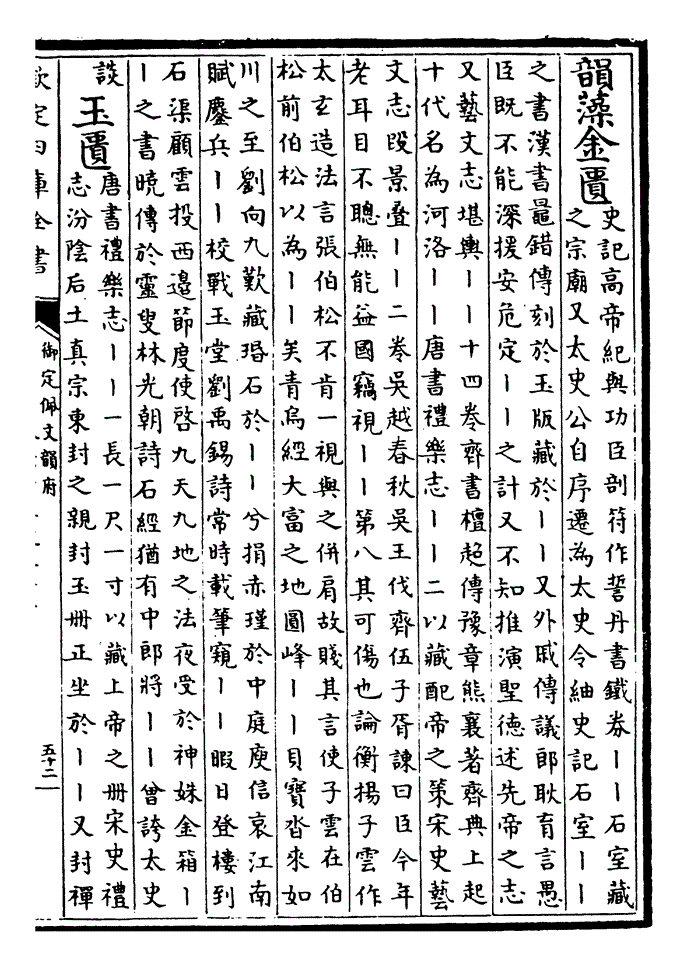 韻藻金匱
史記高帝紀與功臣剖符作誓丹書鐵券丨丨石室藏
之宗廟又太史公自序遷為太史令紬史記石室丨丨
之書漢書鼂錯傳刻於玉版藏於丨丨又外戚傳議郎耿育言愚
臣既不能深援安危定丨丨之計又不知推演聖德述先帝之志
又藝文志堪輿丨丨十四卷齊書檀超傳豫章熊襄著齊典上起
十代名為河洛丨丨唐書禮樂志丨丨二以藏配帝之策宋史藝
文志段景叠丨丨二卷吳越春秋吳王伐齊伍子胥諫曰臣今年
老耳目不聰無能益國竊視丨丨第八其可傷也論衡揚子雲作
太玄造法言張伯松不肯一視與之併肩故賤其言使子雲在伯
松前伯松以為丨丨矣青烏經大富之地圓峰丨丨貝寶沓來如
川之至劉向九歎藏瑉石於丨丨兮捐赤瑾於中庭庾信哀江南
賦鏖兵丨丨校戰玉堂劉禹錫詩常時載筆窺丨丨暇日登樓到
石渠顧雲投西邊節度使啓九天九地之法夜受於神姝金箱丨
丨之書曉傳於靈叟林光朝詩石經猶有中郎將丨丨曾誇太史
談
玉匱
唐書禮樂志丨丨一長一尺一寸以藏上帝之冊宋史禮
志汾陰后土真宗東封之親封玉冊正坐於丨丨又封禪
欽定四庫全書
御定佩文韻府
五十二